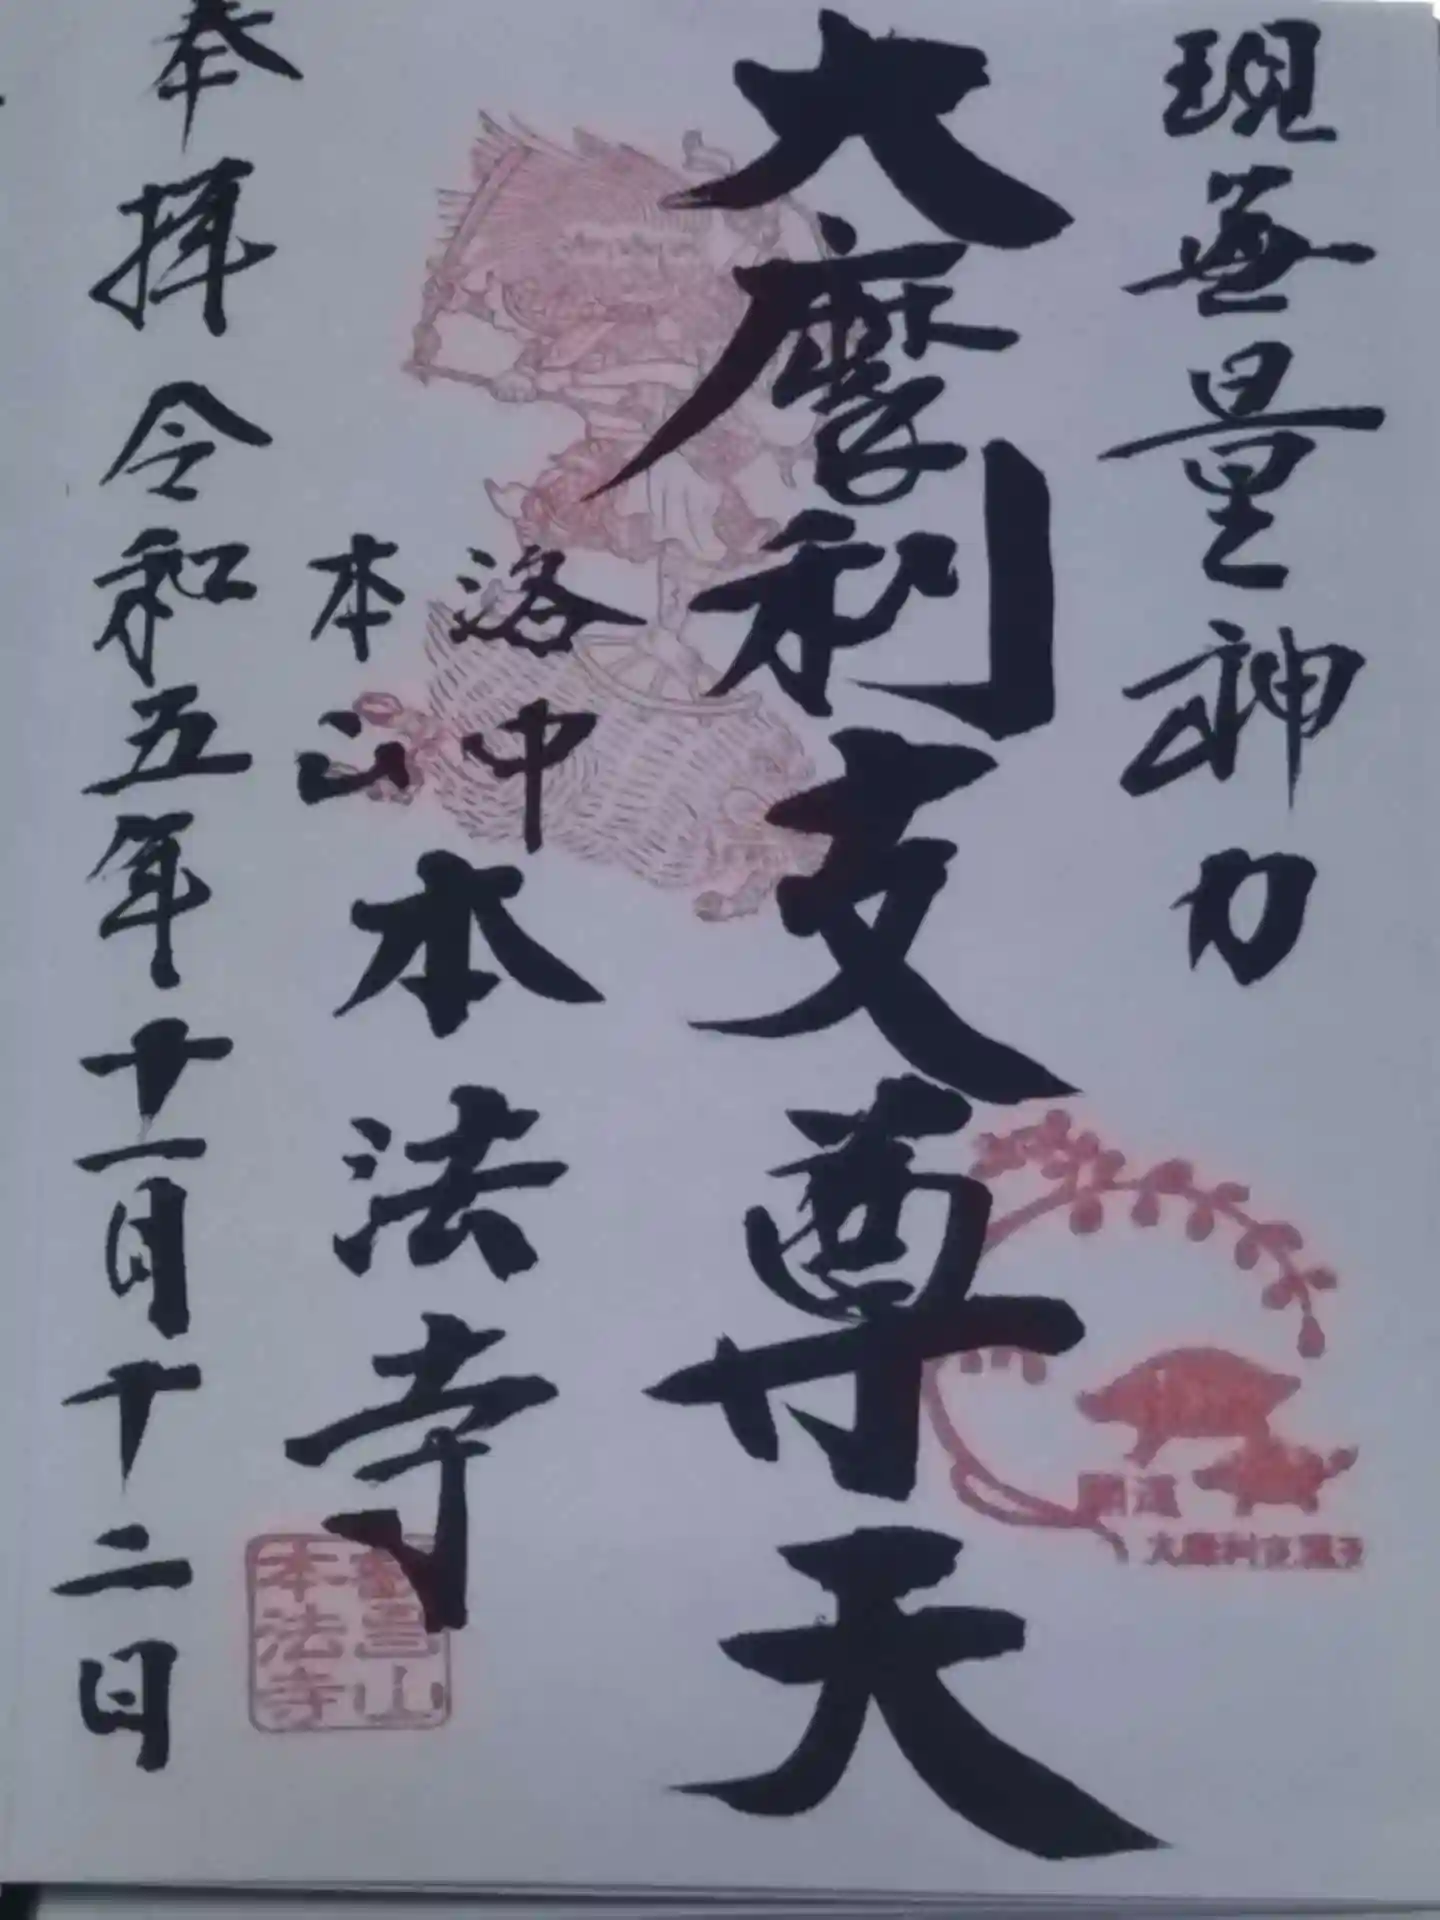 現無量神力
大摩利支尊天
開運
大摩利支尊天
洛中
本山
本法寺
叡昌山
本法寺
奉拝 令和五年十一月十二日